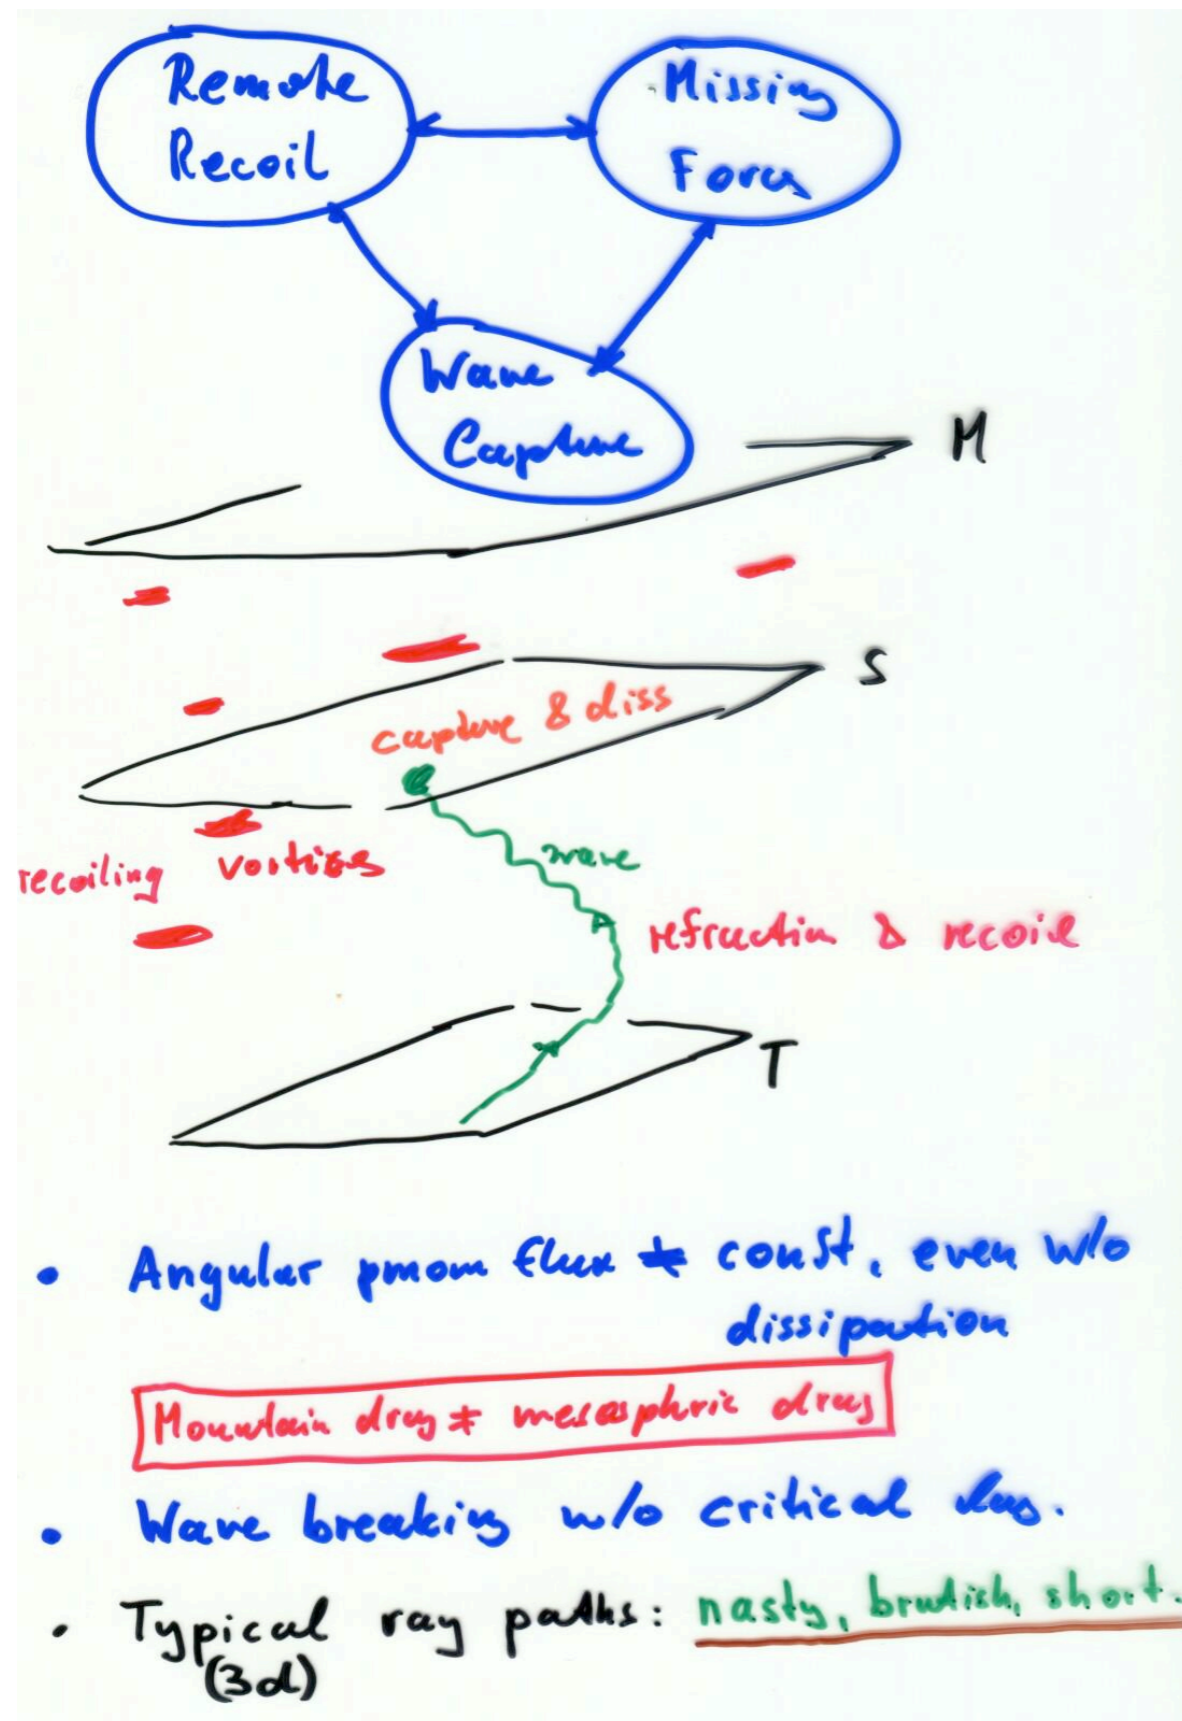 Remote
Recoil
Missing
Force
Wave
Capture
M
S
capture & diss
recoiling vortices
wave
refraction & recoil
T
• Angular pmom flux ≠ const, even w/o
dissipation
Mountain drag ≠ mesospheric drag
• Wave breaking w/o critical
• Typical ray paths: nasty, brutish, short.
(3d)